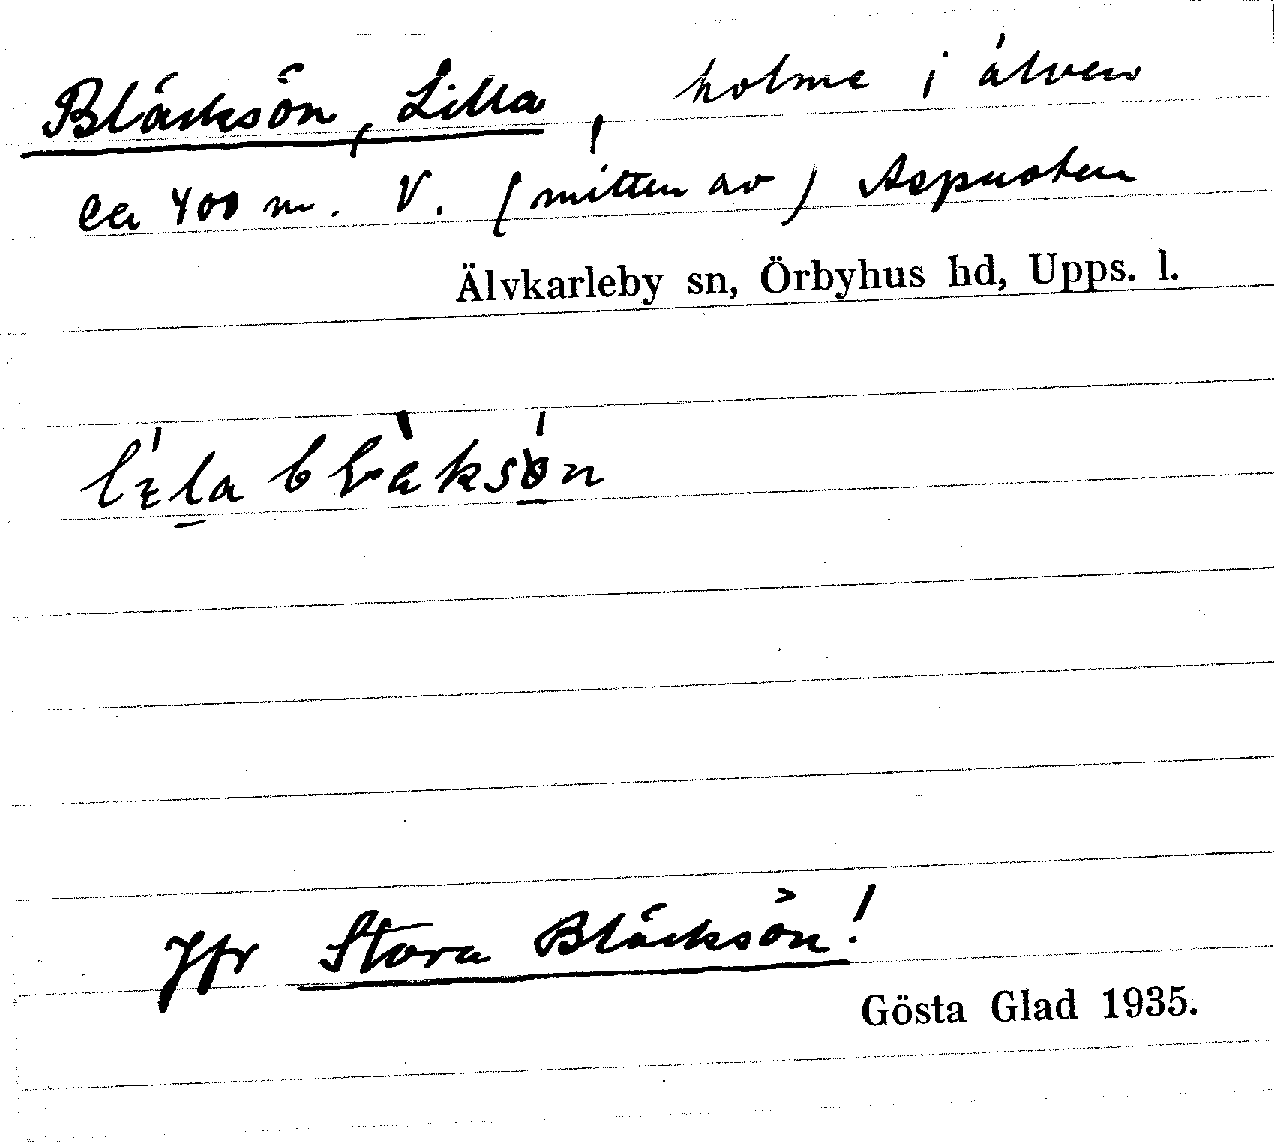 Bläcksön, Lilla, holme i älven
ca 400 m. V. (mitten av)
Älvkarleby sn, Örbyhus hd, Upps. l.
Jfr Stora Bläcksön!
Gösta Glad 1935.